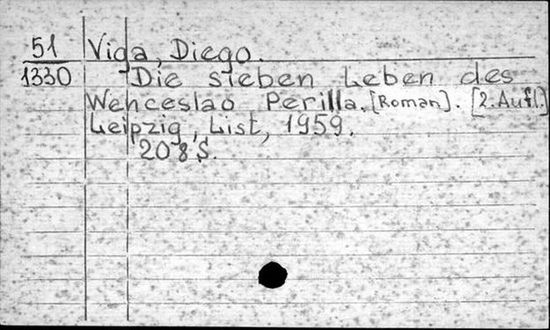 51 Viga, Diego.
1330 Die sieben Leben des
Wenceslao Perilla. [Roman]. [2. Aufl.]
Leipzig, List, 1959.
208 S.